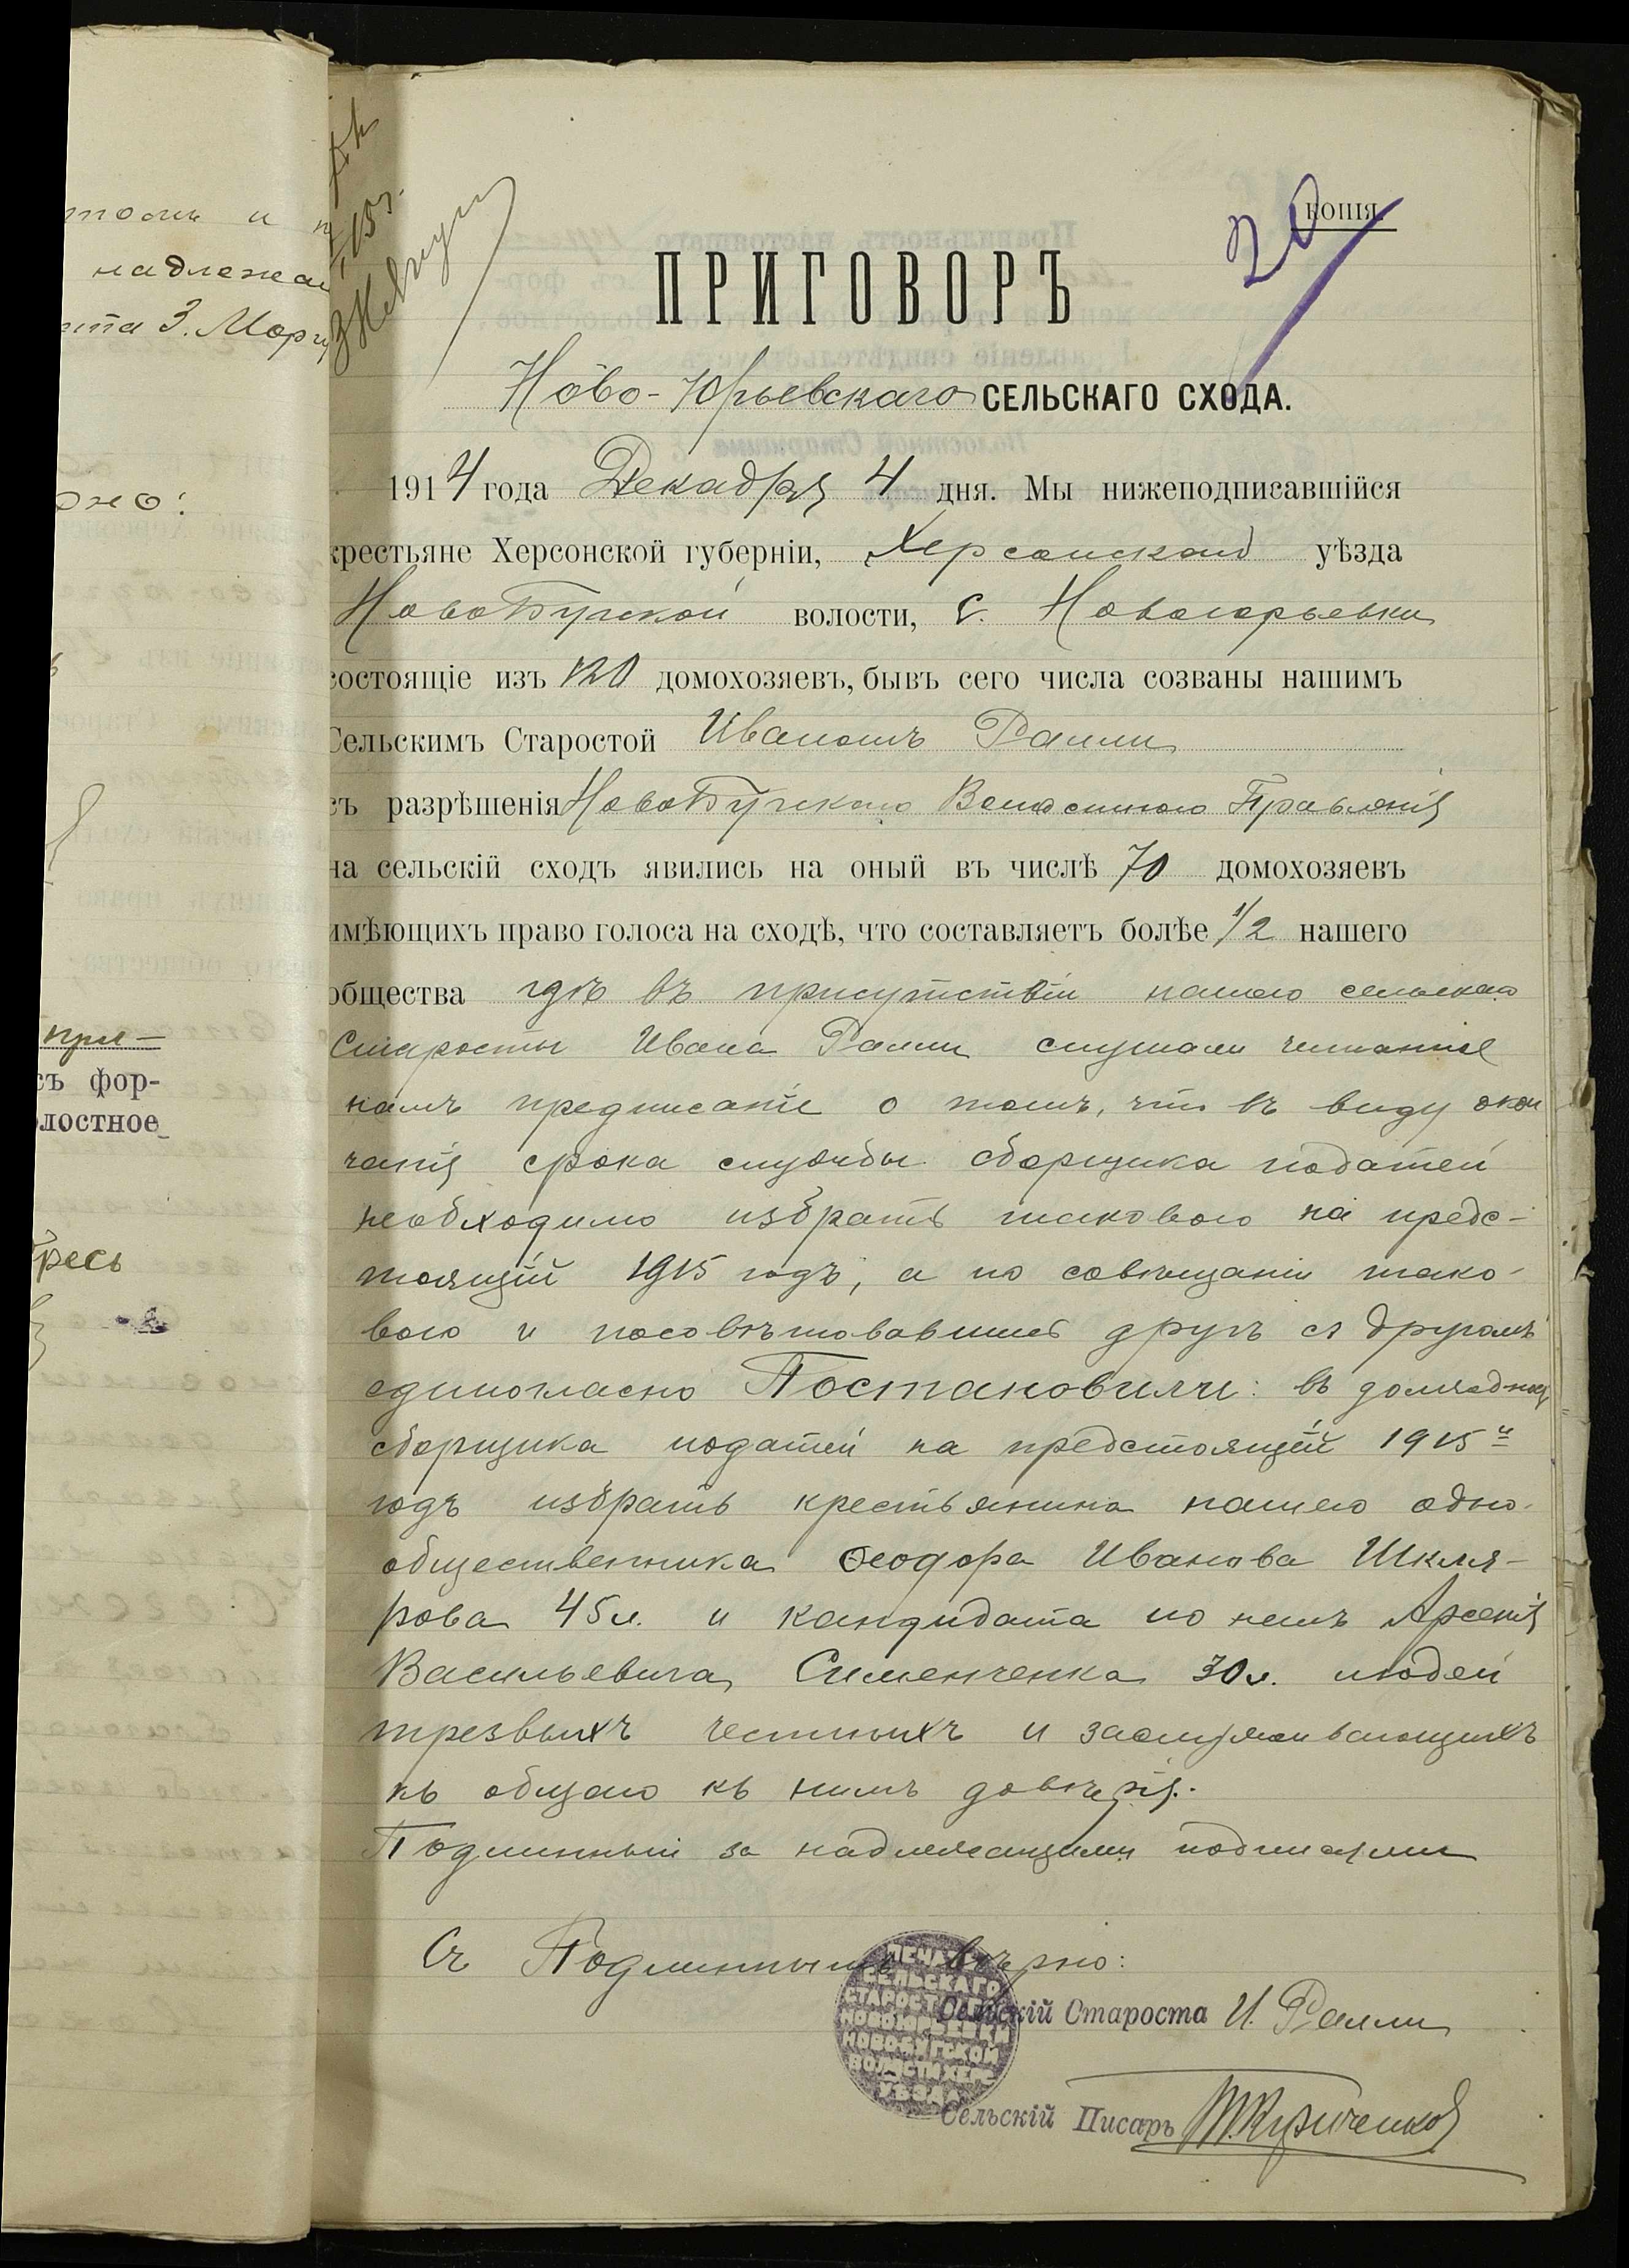 томъ и
надлежа
та З. Мор
ожо:
при—
съ фор-
лостное
ресь
15г.
20
копія.
ПРИГОВОРЪ
Ново-Юрьевскаго СЕЛЬСКАГО СХОДА.
1914 года Декабря 4 дня. Мы нижеподписавшійся
крестьяне Херсонской губерніи, Херсонскаго уѣзда
НовоБугской волости, с. Новоюрьевки
состоящіе изъ 120 домохозяевъ, бывъ сего числа созваны нашимъ
Сельскимъ Старостой Иваномъ Ралли
съ разрѣшенія НовоБугскаго Волостного Правленія
на сельскій сходъ явились на оный въ числѣ 70 домохозяевъ
имѣющихъ право голоса на сходѣ, что составляетъ болѣе 1/2 нашего
общества гдѣ въ присутствіи нашего сельскаго
Старосты Ивана Ралли слушали читанное
намъ предписаніе о томъ, что въ виду окон
чанія срока службы сборщика податей
необходимо избрать таковаго на предс-
тоящій 1915 годъ, а по совѣщаніи тако-
вого и посовѣтовавшись другъ съ другомъ
единогласно Постановили: въ должность
сборщика податей на предстоящій 1915й
годъ избрать крестьянина нашего одно-
общественника Ѳеодора Иванова Шкля-
рова 45 л. и кандидата по немъ Арсенія
Васильевича Сименченка 30 л. людей
трезвыхъ честныхъ и заслуживающихъ
къ общаго къ нимъ довѣрія.
Подлинный за надлежащими подписями
Съ Подлиннымъ вѣрно:
ПЕЧАТЬ
СЕЛЬСКАГО
СТАРОСТЫ
НОВОЮРЬЕВКИ
НОВОБУГСКОЙ
ВОЛОСТИ ХЕР.
УѢЗДА
Сельскій Староста И. Ралли
Сельскій Писарь